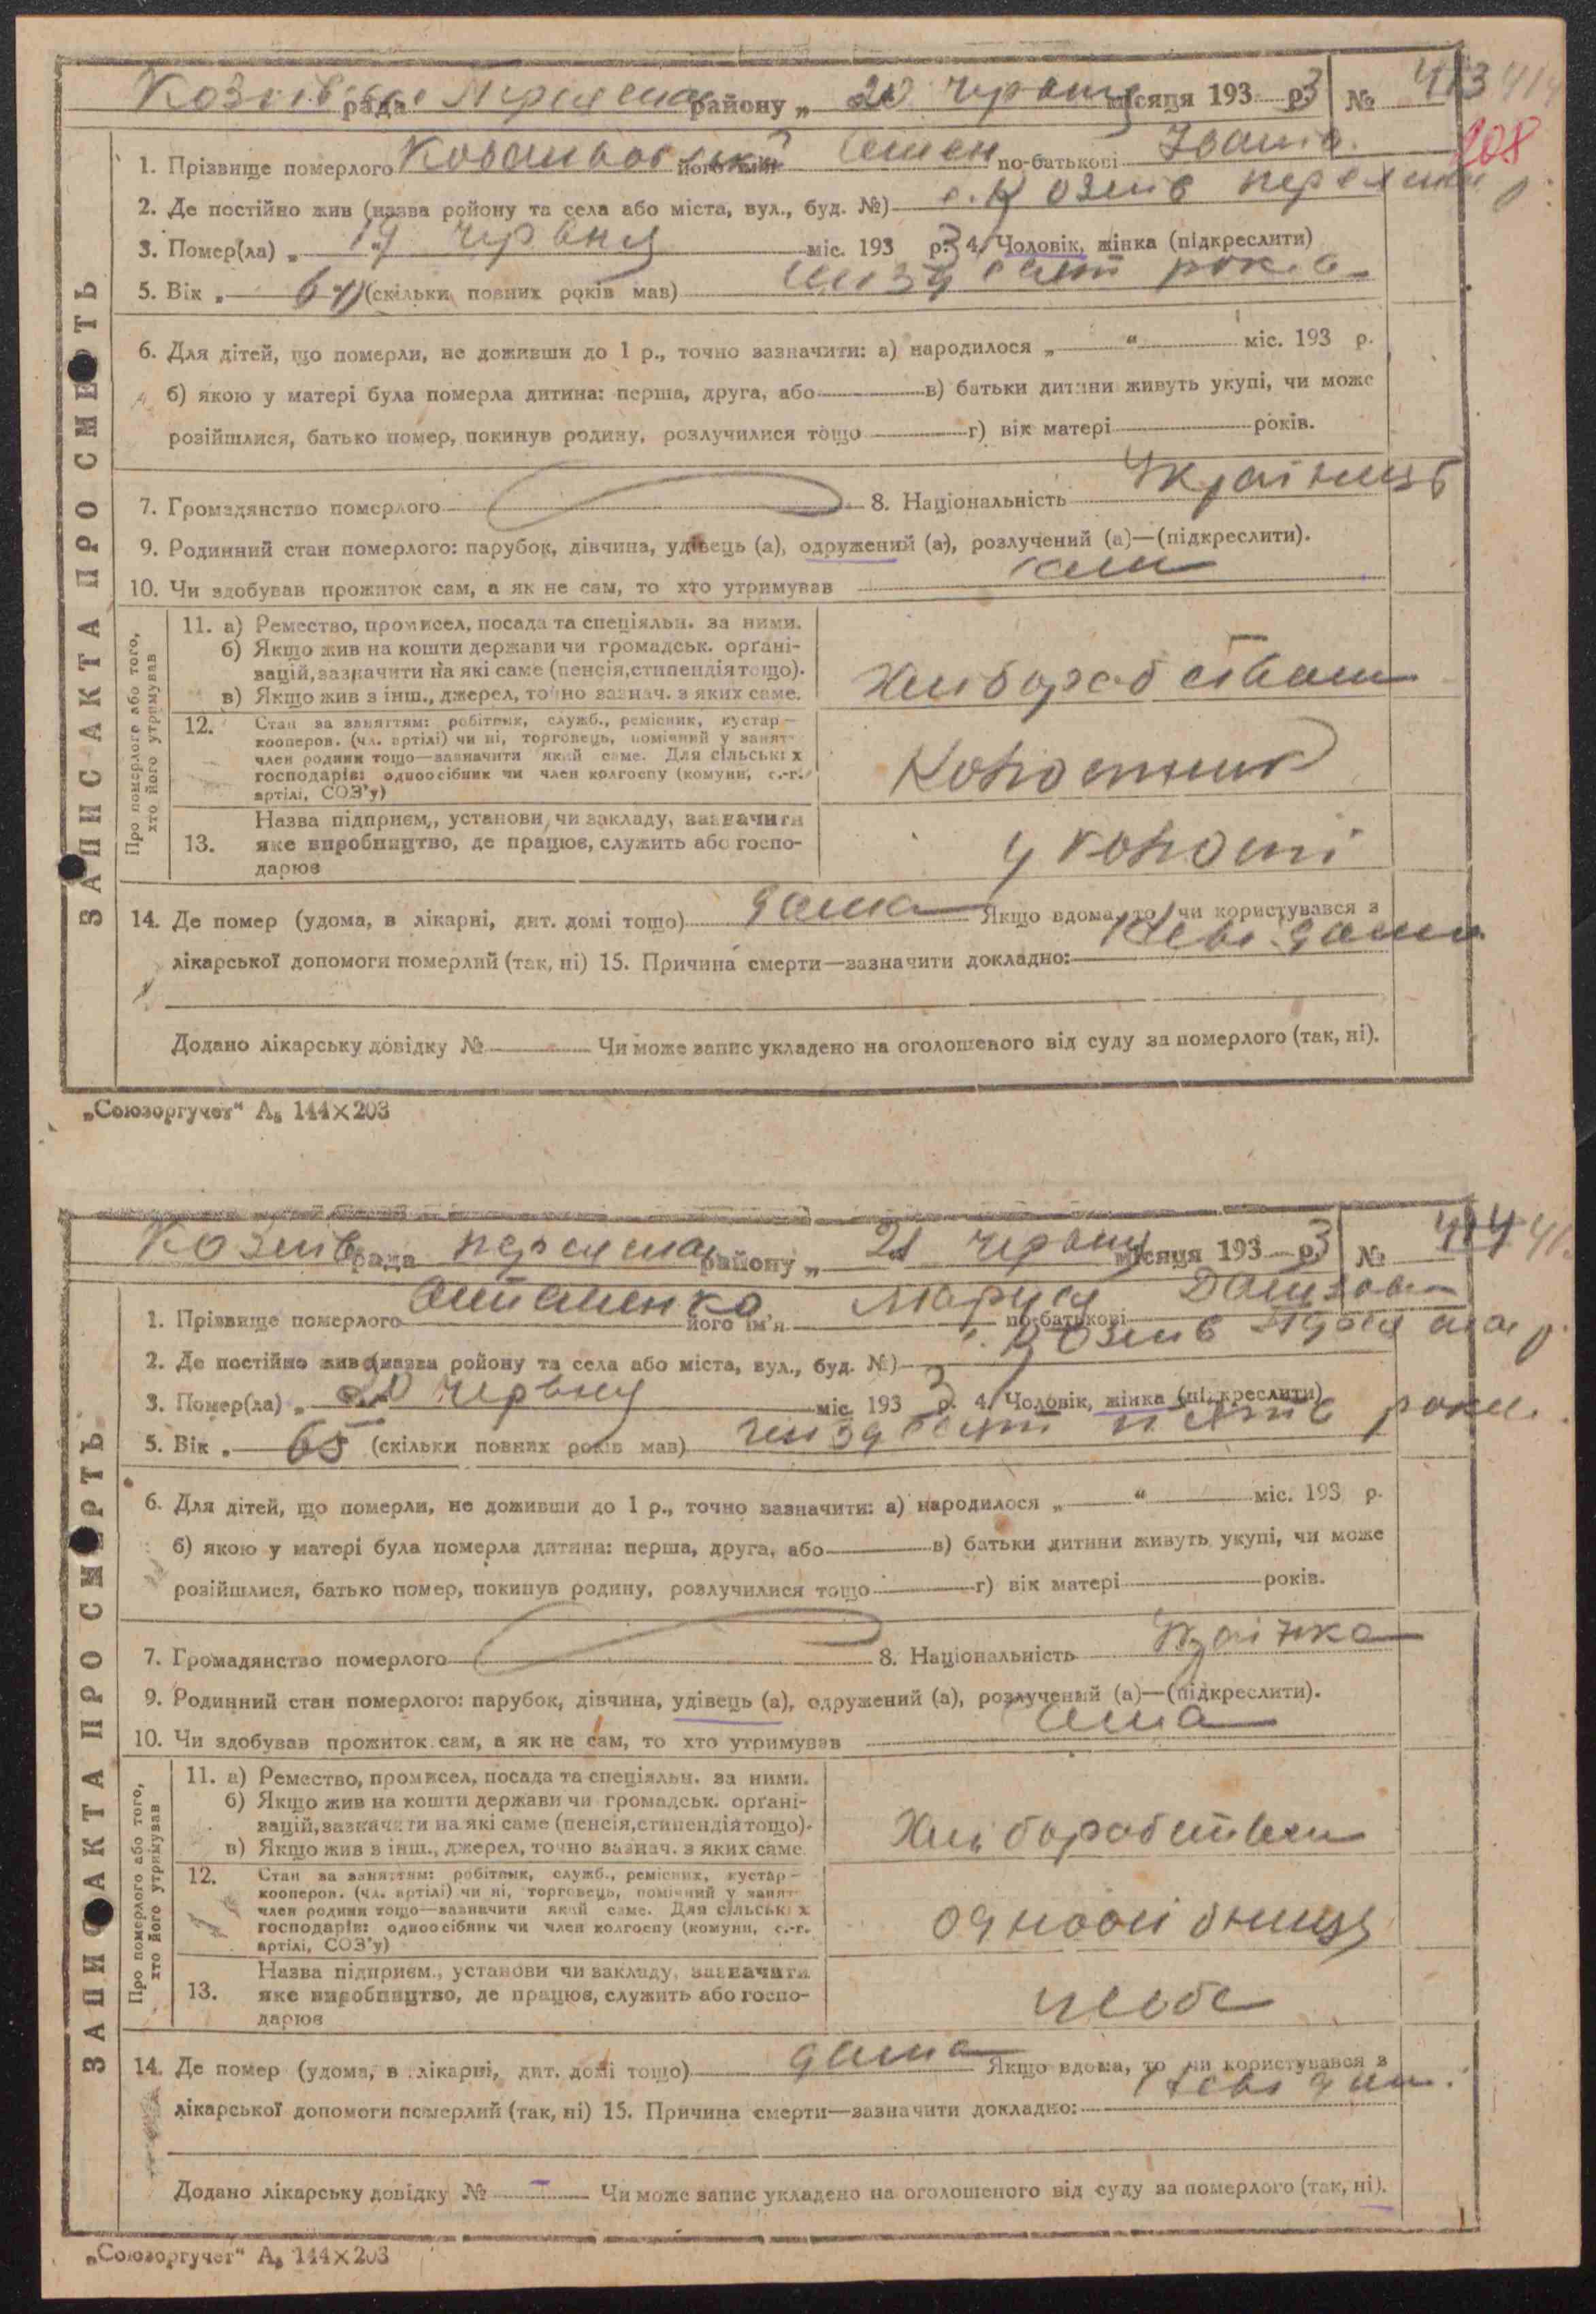 Козіївська рада Переяслав району „ 20 червня місяця 1933 р. № 413 414
208
1. Прізвище померлого його ім'я Семен по-батькові Іванів.
2. Де постійно жив (назва ройону та села або міста, вул., буд. №) с. Козіїв Переяслав р.
3. Помер(ла) „ 19 червня міс. 1933 р. 4. Чоловік, жінка (підкреслити)
5. Вік „ (скільки повних років мав) шіздесят років
6. Для дітей, що померли, не доживши до 1 р., точно зазначити: а) народилося „ “ міс. 193 р.
б) якою у матері була померла дитина: перша, друга, або в) батьки дитини живуть укупі, чи може
розійшлися, батько помер, покинув родину, розлучилися тощо г) вік матері років.
7. Громадянство померлого 8. Національність Українець
9. Родинний стан померлого: парубок, дівчина, удівець (а), одружений (а), розлучений (а)—(підкреслити).
10. Чи здобував прожиток сам, а як не сам, то хто утримував сам
ЗАПИС АКТА ПРО СМЕРТЬ
Про померлого або того,
хто його утримував
11. а) Ремество, промисел, посада та спеціяльн. за ними.
б) Якщо жив на кошти держави чи громадськ. орґані-
зацій, зазначити на які саме (пенсія, стипендія тощо).
в) Якщо жив з інш., джерел, точно зазнач. з яких саме.
Хліборобством
12. Стан за заняттям: робітник, служб., ремісник, кустар—
кооперов. (чл. артілі) чи ні, торговець, помічний у занят-
член родини тощо—зазначити який саме. Для сільських
господарів: одноосібник чи член колгоспу (комуни, с.-г.
артілі, СОЗ'у)
13. Назва підприєм., установи чи закладу, зазначити
яке виробництво, де працює, служить або госпо-
дарює
14. Де помер (удома, в лікарні, дит. домі тощо) дома Якщо вдома, то чи користувався з
лікарської допомоги померлий (так, ні) 15. Причина смерти—зазначити докладно: Невідома
Додано лікарську довідку № Чи може запис укладено на оголошеного від суду за померлого (так, ні).
„Союзоргучет“ А₅ 144×203
Козіїв рада Переяслав району „ 21 червня місяця 1933 р. № 414
1. Прізвище померлого його ім'я Маруся по-батькові
2. Де постійно жив (назва ройону та села або міста, вул., буд. №) с. Козіїв Переяслав р.
3. Помер(ла) „ 20 червня міс. 1933 р. 4. Чоловік, жінка (підкреслити)
5. Вік „ 65 (скільки повних років мав) шіздесят пять років.
6. Для дітей, що померли, не доживши до 1 р., точно зазначити: а) народилося „ “ міс. 193 р.
б) якою у матері була померла дитина: перша, друга, або в) батьки дитини живуть укупі, чи може
розійшлися, батько помер, покинув родину, розлучилися тощо г) вік матері років.
7. Громадянство померлого 8. Національність Украінка
9. Родинний стан померлого: парубок, дівчина, удівець (а), одружений (а), розлучений (а)—(підкреслити).
10. Чи здобував прожиток сам, а як не сам, то хто утримував сама
ЗАПИС АКТА ПРО СМЕРТЬ
Про померлого або того,
хто його утримував
11. а) Ремество, промисел, посада та спеціяльн. за ними.
б) Якщо жив на кошти держави чи громадськ. орґані-
зацій, зазначити на які саме (пенсія, стипендія тощо).
в) Якщо жив з інш., джерел, точно зазнач. з яких саме.
Хліборобством
12. Стан за заняттям: робітник, служб., ремісник, кустар—
кооперов. (чл. артілі) чи ні, торговець, помічний у занят-
член родини тощо—зазначити який саме. Для сільських
господарів: одноосібник чи член колгоспу (комуни, с.-г.
артілі, СОЗ'у)
одноосібниця
13. Назва підприєм., установи чи закладу, зазначити
яке виробництво, де працює, служить або госпо-
дарює
у себе
14. Де помер (удома, в лікарні, дит. домі тощо) дома Якщо вдома, то чи користувався з
лікарської допомоги померлий (так, ні) 15. Причина смерти—зазначити докладно: Невідом.
Додано лікарську довідку № Чи може запис укладено на оголошеного від суду за померлого (так, ні).
„Союзоргучет“ А₅ 144×203